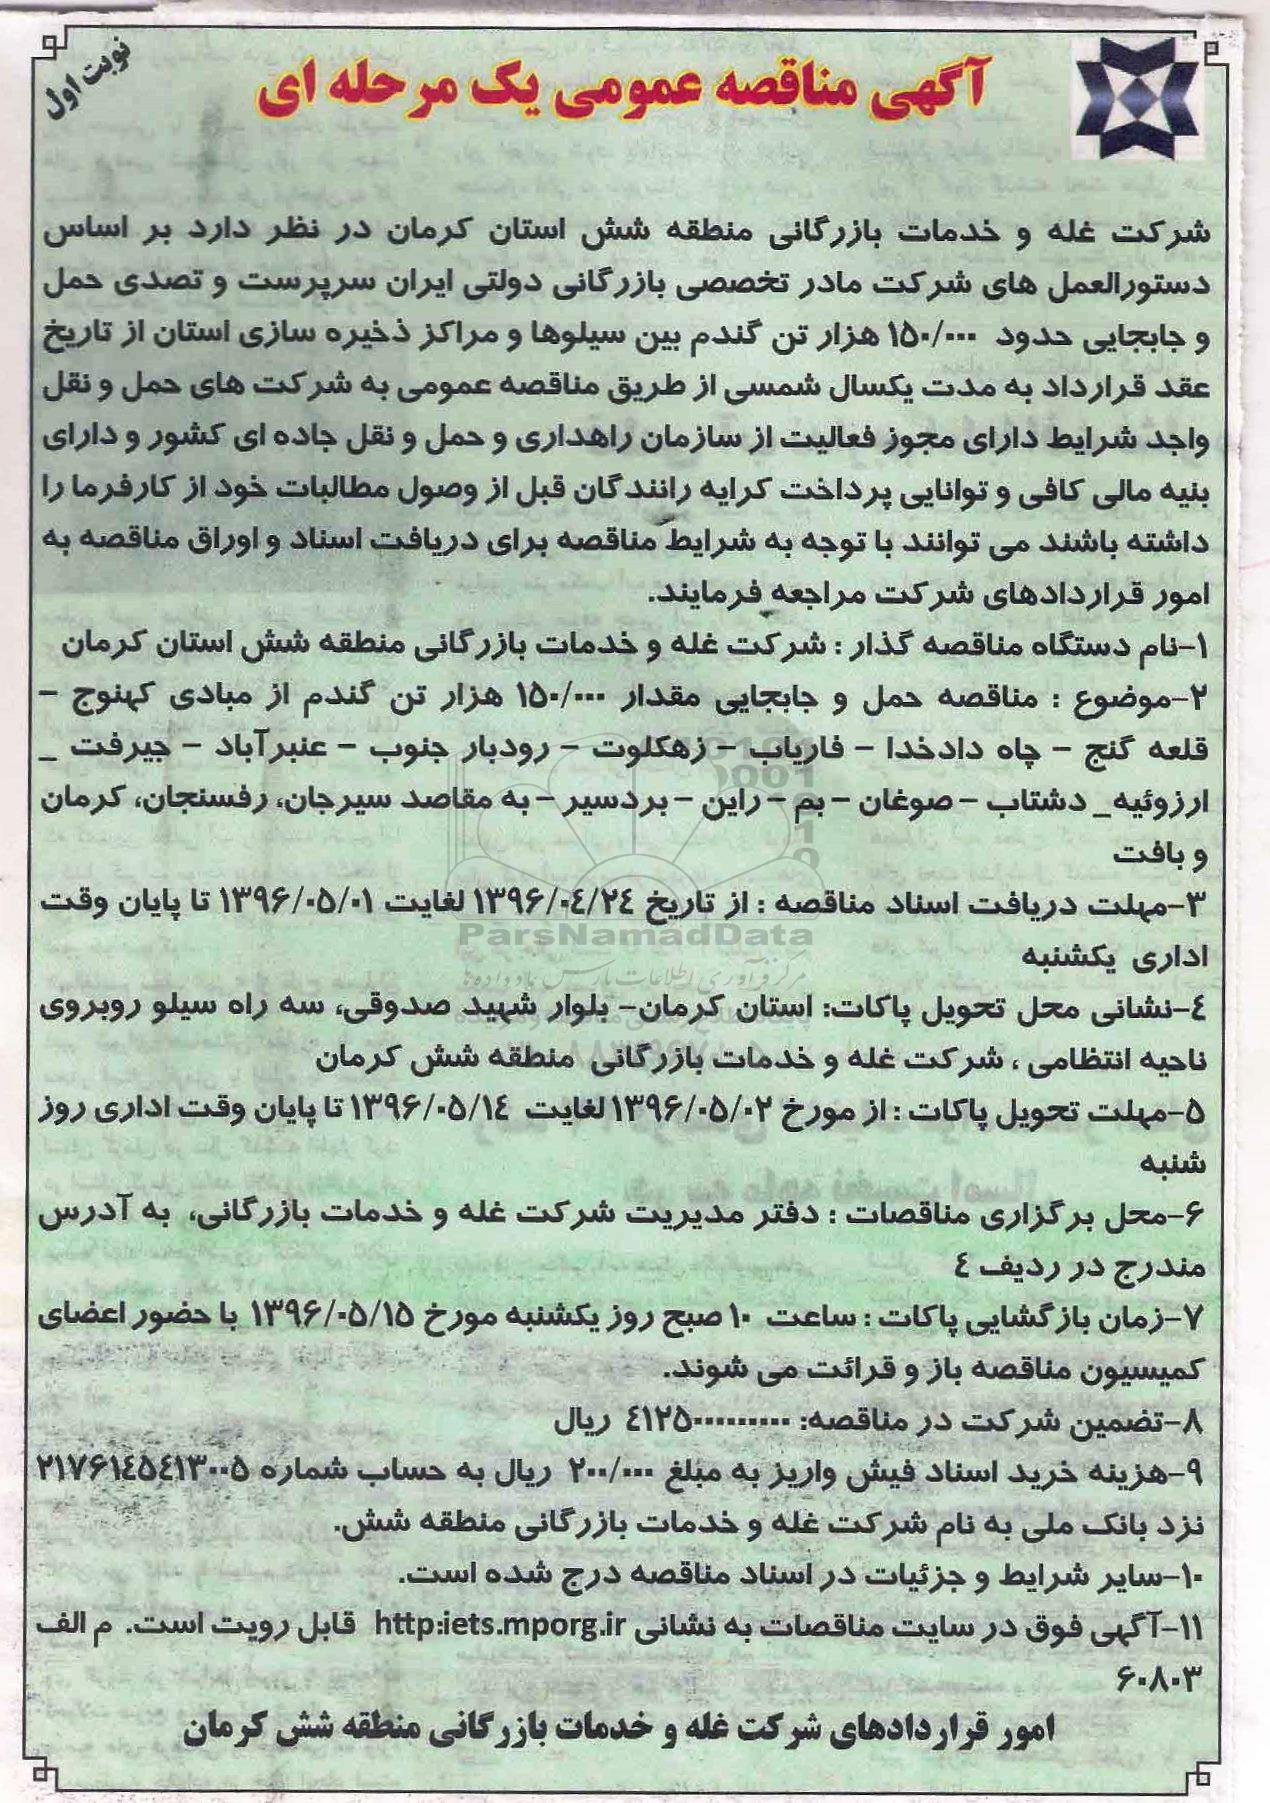 نوبت اول
آگهی مناقصه عمومی یک مرحله ای
شرکت غله و خدمات بازرگانی منطقه شش استان کرمان در نظر دارد بر اساس
دستورالعمل های شرکت مادر تخصصی بازرگانی دولتی ایران سرپرست و تصدی حمل
و جابجایی حدود ۱۵۰/۰۰۰ هزار تن گندم بین سیلوها و مراکز ذخیره سازی استان از تاریخ
عقد قرارداد به مدت یکسال شمسی از طریق مناقصه عمومی به شرکت های حمل و نقل
واجد شرایط دارای مجوز فعالیت از سازمان راهداری و حمل و نقل جاده ای کشور و دارای
بنیه مالی کافی و توانایی پرداخت کرایه رانندگان قبل از وصول مطالبات خود از کارفرما را
داشته باشند می توانند با توجه به شرایط مناقصه برای دریافت اسناد و اوراق مناقصه به
امور قراردادهای شرکت مراجعه فرمایند.
۱-نام دستگاه مناقصه گذار : شرکت غله و خدمات بازرگانی منطقه شش استان کرمان
۲-موضوع : مناقصه حمل و جابجایی مقدار ۱۵۰/۰۰۰ هزار تن گندم از مبادی کهنوج –
قلعه گنج – چاه دادخدا – فاریاب – زهکلوت – رودبار جنوب – عنبرآباد – جیرفت _
ارزوئیه_ دشتاب – صوغان – بم – راین – بردسیر – به مقاصد سیرجان، رفسنجان، کرمان
و بافت
۳-مهلت دریافت اسناد مناقصه : از تاریخ ۱۳۹۶/۰٤/۲٤ لغایت ۱۳۹۶/۰۵/۰۱ تا پایان وقت
اداری یکشنبه
ParsNamadData
مرکز فرآوری اطلاعات پارس نماد داده‌ها
٤-نشانی محل تحویل پاکات: استان کرمان- بلوار شهید صدوقی، سه راه سیلو روبروی
ناحیه انتظامی ، شرکت غله و خدمات بازرگانی منطقه شش کرمان
۵-مهلت تحویل پاکات : از مورخ ۱۳۹۶/۰۵/۰۲ لغایت ۱۳۹۶/۰۵/۱٤ تا پایان وقت اداری روز
شنبه
۶-محل برگزاری مناقصات : دفتر مدیریت شرکت غله و خدمات بازرگانی، به آدرس
مندرج در ردیف ٤
۷-زمان بازگشایی پاکات : ساعت ۱۰ صبح روز یکشنبه مورخ ۱۳۹۶/۰۵/۱۵ با حضور اعضای
کمیسیون مناقصه باز و قرائت می شوند.
۸-تضمین شرکت در مناقصه: ٤۱۲۵۰۰۰۰۰۰۰۰۰ ریال
۹-هزینه خرید اسناد فیش واریز به مبلغ ۲۰۰/۰۰۰ ریال به حساب شماره ۲۱۷۶۱٤۵٤۱۳۰۰۵
نزد بانک ملی به نام شرکت غله و خدمات بازرگانی منطقه شش.
۱۰-سایر شرایط و جزئیات در اسناد مناقصه درج شده است.
۱۱-آگهی فوق در سایت مناقصات به نشانی http:iets.mporg.ir قابل رویت است. م الف
۶۰۸۰۳
امور قراردادهای شرکت غله و خدمات بازرگانی منطقه شش کرمان